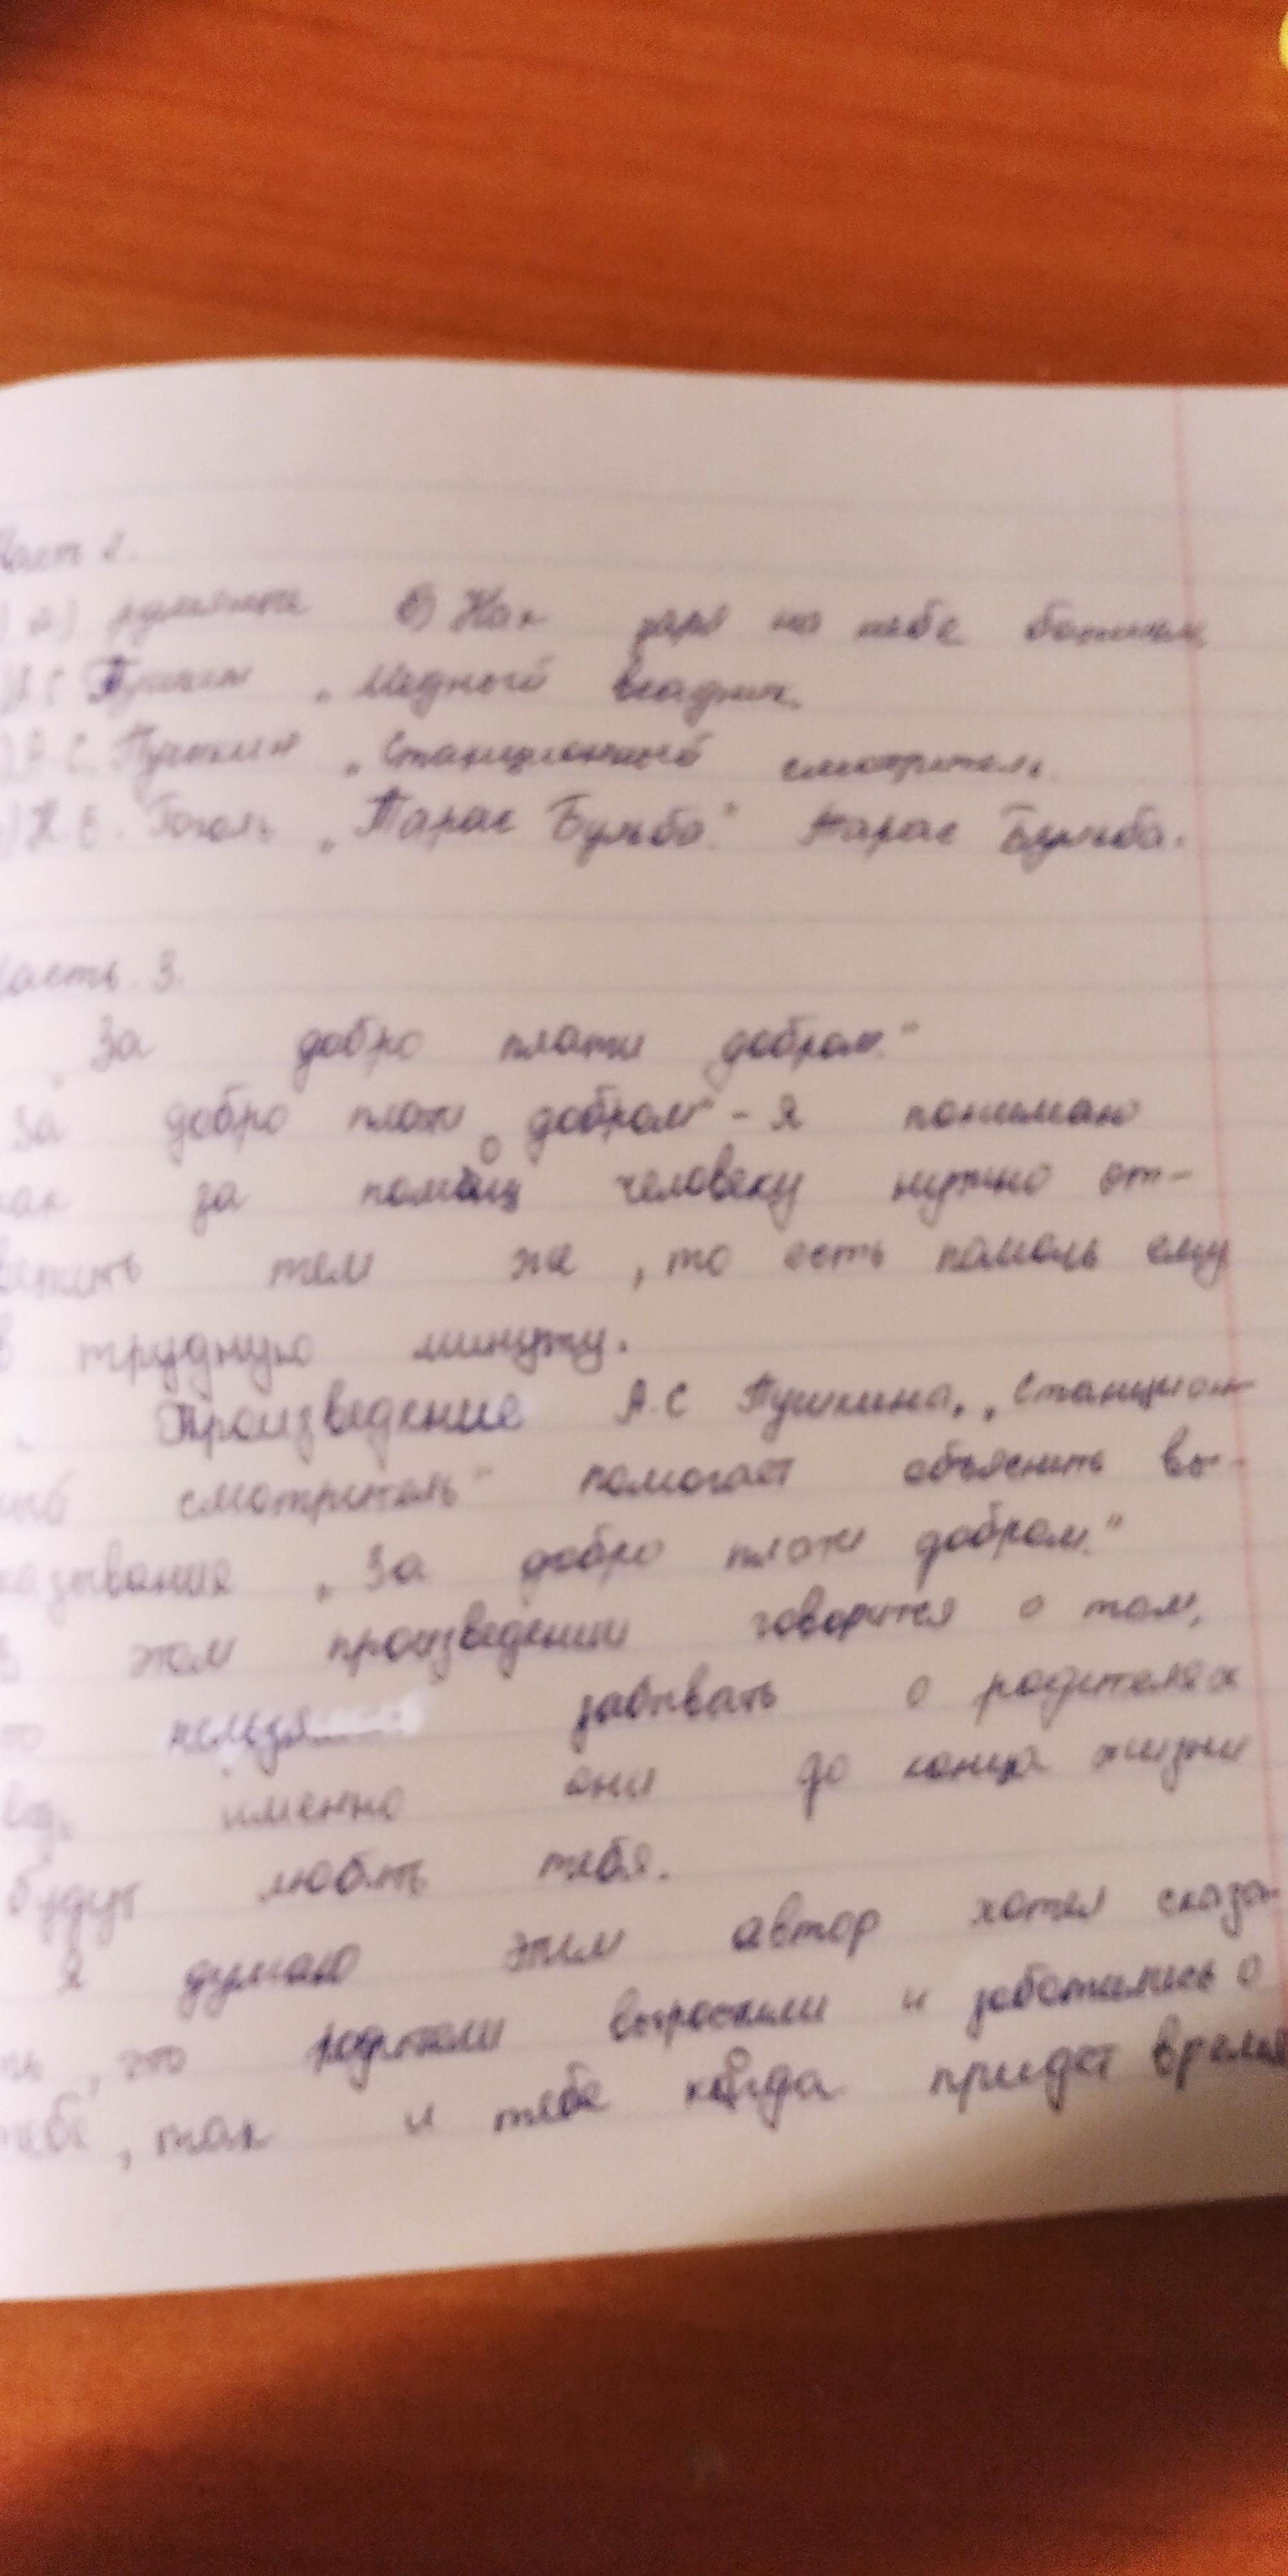 Част 2.
а) румяна б) Как заря на небе
А.С Пушкин „Медный всадник„
А.С. Пушкин „Станционный смотритель„
Н.В. Гоголь „Тарас Бульба." Тарас Бульба.
Часть 3.
„За добро плати добром."
За добро плати добром" - я понимаю
как за помощ человеку нужно от-
ветить тем же, то есть помочь ему
в трудную минуту.
Произведение А.С Пушкина, „Станцион-
ный смотритель" помогает объяснить вы-
казывание „За добро плати добром."
В этом произведении говорится о том,
то нельзя забывать о родителях
ведь именно они до конца жизни
будут любить тебя.
Я думаю этим автор хотел сказа-
ть, что родители выростили и заботились о
тебе, так и тебе когда придет время